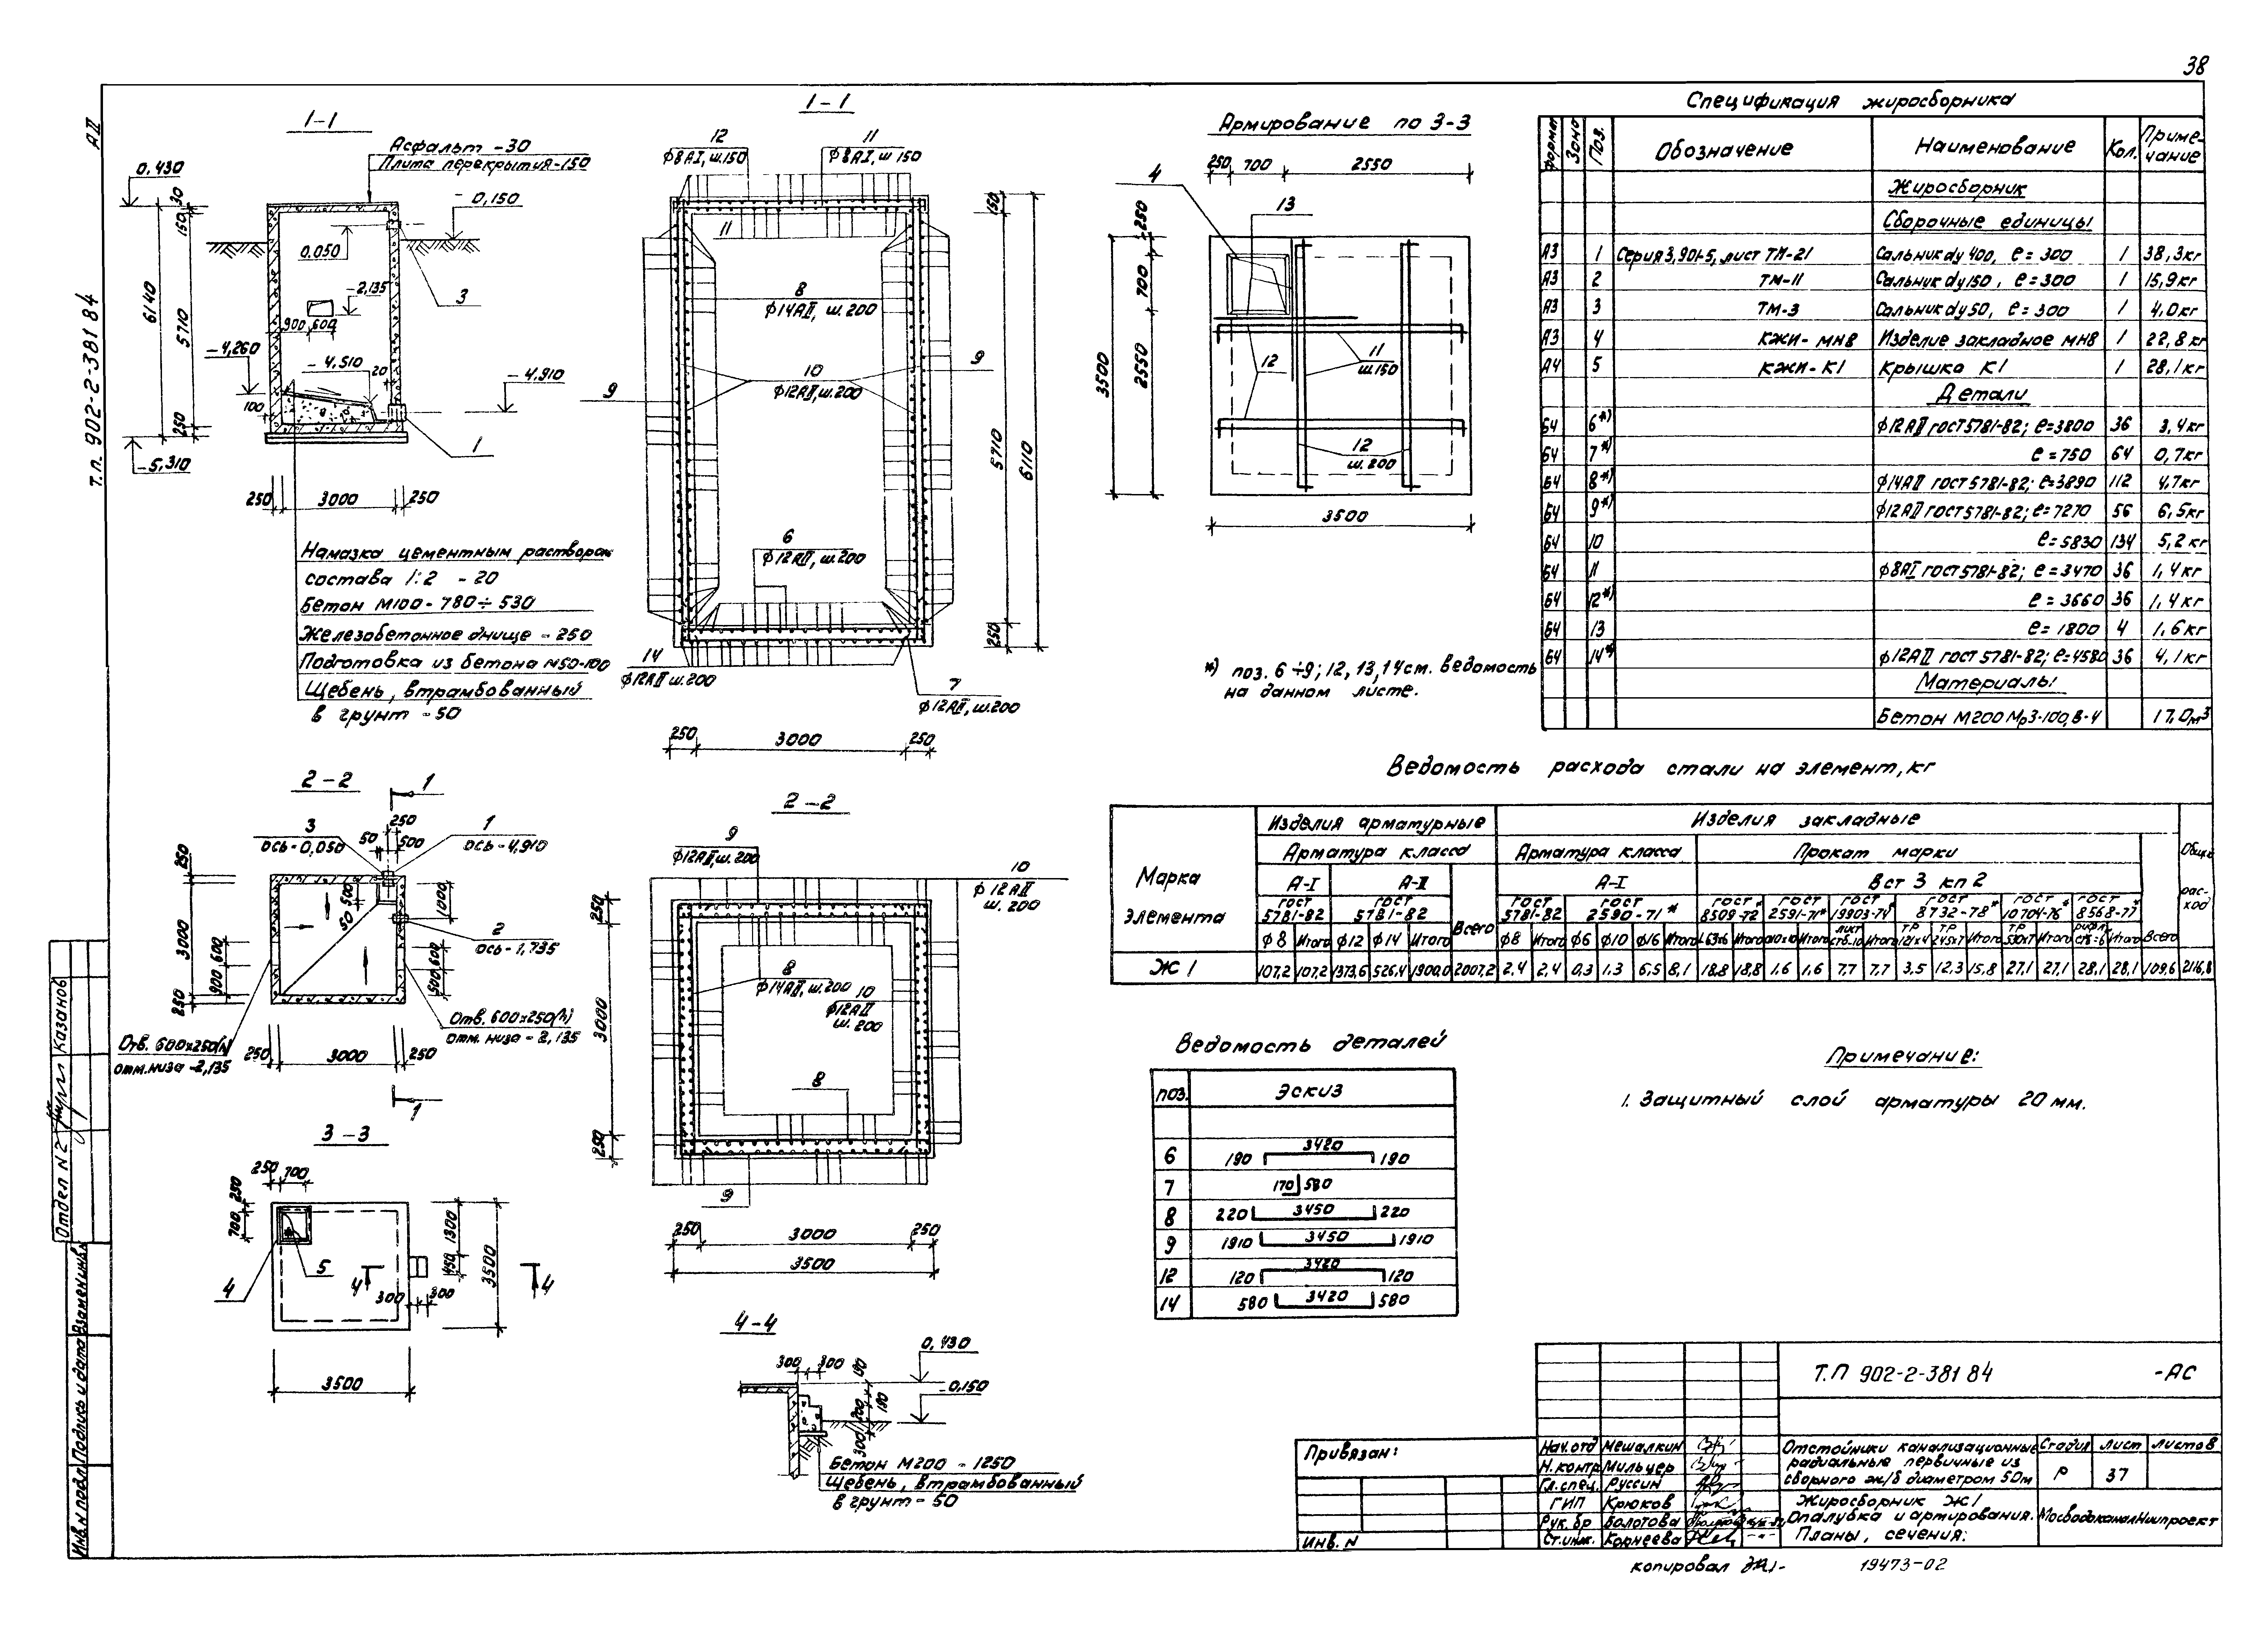 38
АII
т.п. 902-2-381 84
1-1
Асфальт -30
Плита перекрытия-150
0,430
-0,150
30
150
6140
5710
250
0,050
-2,135
3
900 600
-4,260
-4,510
20
-4,910
100
1
-5,310
250 3000 250
Намазка цементным раствором
состава 1:2 -20
Бетон М100- 780÷530
Железобетонное днище -250
Подготовка из бетона М50-100
Щебень, втрамбованный
в грунт -50
1-1
12
ф8АI, ш.150
11
ф8АI, ш 150
11
8
ф14АII, ш. 200
10
ф12АII, ш.200
9
9
6
ф12АII, ш.200
14
ф12АII ш.200
7
ф12АII, ш.200
150
5710
6110
250
250 3000 250
Армирование по 3-3
250 700 2550
4
13
250
700
2550
3500
11
ш.150
12
12
ш.200
3500
*) поз. 6÷9; 12, 13, 14 см. ведомость
на данном листе.
Спецификация жиросборника
Формат Зона Поз. Обозначение Наименование Кол. Приме-
чание
Жиросборник
Сборочные единицы
А3 1 Серия 3,901-5, лист ТМ-21 Сальник dу 400, е=300 1 38,3кг
А3 2 ТМ-11 Сальник dу150, е=300 1 15,9кг
А3 3 ТМ-3 Сальник dу50, е=300 1 4,0кг
А3 4 КЖИ-МН8 Изделие закладное МН8 1 22,8кг
А4 5 КЖИ-К1 Крышка К1 1 28,1кг
Детали
БЧ 6*) ф12АII ГОСТ5781-82; е=3800 36 3,4кг
БЧ 7*) е=750 64 0,7кг
БЧ 8*) ф14АII ГОСТ5781-82; е=3890 112 4,7кг
БЧ 9*) ф12АII ГОСТ5781-82; е=7270 56 6,5кг
БЧ 10 е=5830 134 5,2кг
БЧ 11 ф8АI ГОСТ5781-82; е=3470 36 1,4кг
БЧ 12*) е=3660 36 1,4кг
БЧ 13 е=1800 4 1,6кг
БЧ 14*) ф12АII ГОСТ5781-82; е=4580 36 4,1кг
Материалы
Бетон М200 Мрз-100, В-4 17,0м3
Ведомость расхода стали на элемент, кг
Марка элемента Изделия арматурные Изделия закладные Общий расход
Арматура класса Арматура класса Прокат марки
А-I А-II Всего А-I Вст 3 кп 2 Всего
ГОСТ 5781-82 ГОСТ 5781-82 ГОСТ 5781-82 ГОСТ 2590-71* ГОСТ 8509-72* ГОСТ 2591-71* ГОСТ 19903-74* ГОСТ 8732-78* ГОСТ 10704-76* ГОСТ 8568-77*
ф8 Итого ф12 ф14 Итого ф8 Итого ф6 ф10 ф16 Итого L63х6 Итого Итого Итого Итого Итого Итого
Ж1 107,2 107,2 1373,6 526,4 1900,0 2007,2 2,4 2,4 0,3 1,3 6,5 8,1 18,8 18,8 1,6 1,6 7,7 7,7 3,5 12,3 15,8 27,1 27,1 28,1 28,1 109,6 2116,8
2-2
1
3
ось-0,050
1
ось-4,910
250
50 500
250
3000
900 600
250
500
50
1000
2
ось-1,735
500 600
Отв. 600х250(h)
отм. низа -2,135
Отв. 600х250(h)
отм.низа -2,135
250 3000 250
1
3-3
250 700
250
700
4
5
4
4
300 300
1300
450
3500
3500
2-2
9
ф12АII, ш.200
10
ф12АII
ш. 200
8
ф14АII, ш.200
10
ф12АII
ш.200
8
9
250
3000
250
250 3000 250
3500
4-4
0,430
-0,150
300 300
300
Бетон М200 -1250
Щебень, втрамбованный
в грунт -50
Ведомость деталей
поз. Эскиз
6 190 3420 190
7 170 580
8 220 3450 220
9 1910 3450 1910
12 120 3420 120
14 580 3420 580
Примечание:
1. Защитный слой арматуры 20 мм.
Т.П 902-2-381 84 -АС
Привязан:
Инв. N
Нач.отд Мешалкин
Н.контр. Мильчер
Гл.спец. Руссин
ГИП Крюков
Рук.бр Болотова
Ст.инж. Корнеева
Отстойники канализационные
радиальные первичные из
сборного ж/б диаметром 50м
Стадия Лист Листов
Р 37
Жиросборник Ж1
Опалубка и армирование.
Планы, сечения.
МосводоканалНиипроект
копировал
19473-02
Отдел N2 Казанов
Инв.N подл. Подпись и дата Взамен инв.N